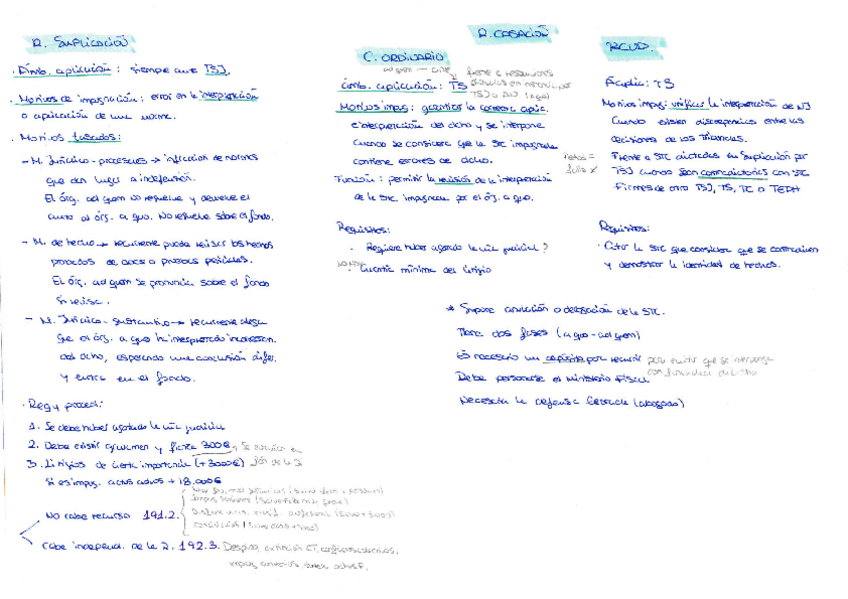 R. Suplicación
· Ámb. aplicación: siempre ante TSJ.
· Motivos de impugnación: error en la interpretación
o aplicación de una norma.
· Motivos tasados:
- M. Jurídico-procesales → infracción de normas
que dan lugar a indefensión.
El órg. ad quem no resuelve y devuelve el
auto al órg. a quo. No resuelve sobre el fondo.
- M. de hecho → recurrente puede revisar los hechos
probados de docs o pruebas periciales.
El órg. ad quem se pronuncia sobre el fondo
- M. Jurídico-sustantivo → recurrente alega
que el órg. a quo ha interpretado incorrectam.
del dcho, esperando una conclusión difer.
y entra en el fondo.
· Reg y proced:
1. Se debe haber agotado la vía judicial
2. Debe existir gravamen y fianza 300€,
3. Litigios de cierta importancia (+3000€)
Si es impug. actos admvos +18.000€
No cabe recurso 191.2.
Cabe independ. de la 2. 192.3. Despido, extinción CT,
R. CASACIÓN
C. ORDINARIO
Ámb. aplicación: TS
Motivos impug: garantizar la correcta aplic.
e interpretación del dcho y se interpone
cuando se considera que la STC impugnada
contiene errores de dcho.
Función: permitir la revisión de la interpretación
de la STC impugnada por el órg. a quo.
Requisitos:
· Requiere haber agotado la vía judicial?
· Cuantía mínima del litigio
RCUD.
Ámb. aplic: TS
Motivos impug: unificar la interpretación de NJ
Cuando existen discrepancias entre las
decisiones de los tribunales.
Frente a STC dictadas en Suplicación por
TSJ cuando sean contradictorias con STC
Firmes de otro TSJ, TS, TC o TEDH
Requisitos:
· Citar la STC que considera que se contradicen
y demostrar la identidad de hechos.
* Supone anulación o derogación de la STC.
Tiene dos fases (a quo - ad quem)
Es necesario un depósito por recurrir para evitar que se interponga
Debe personarse el Ministerio Fiscal
Necesita la defensa letrada (abogado)